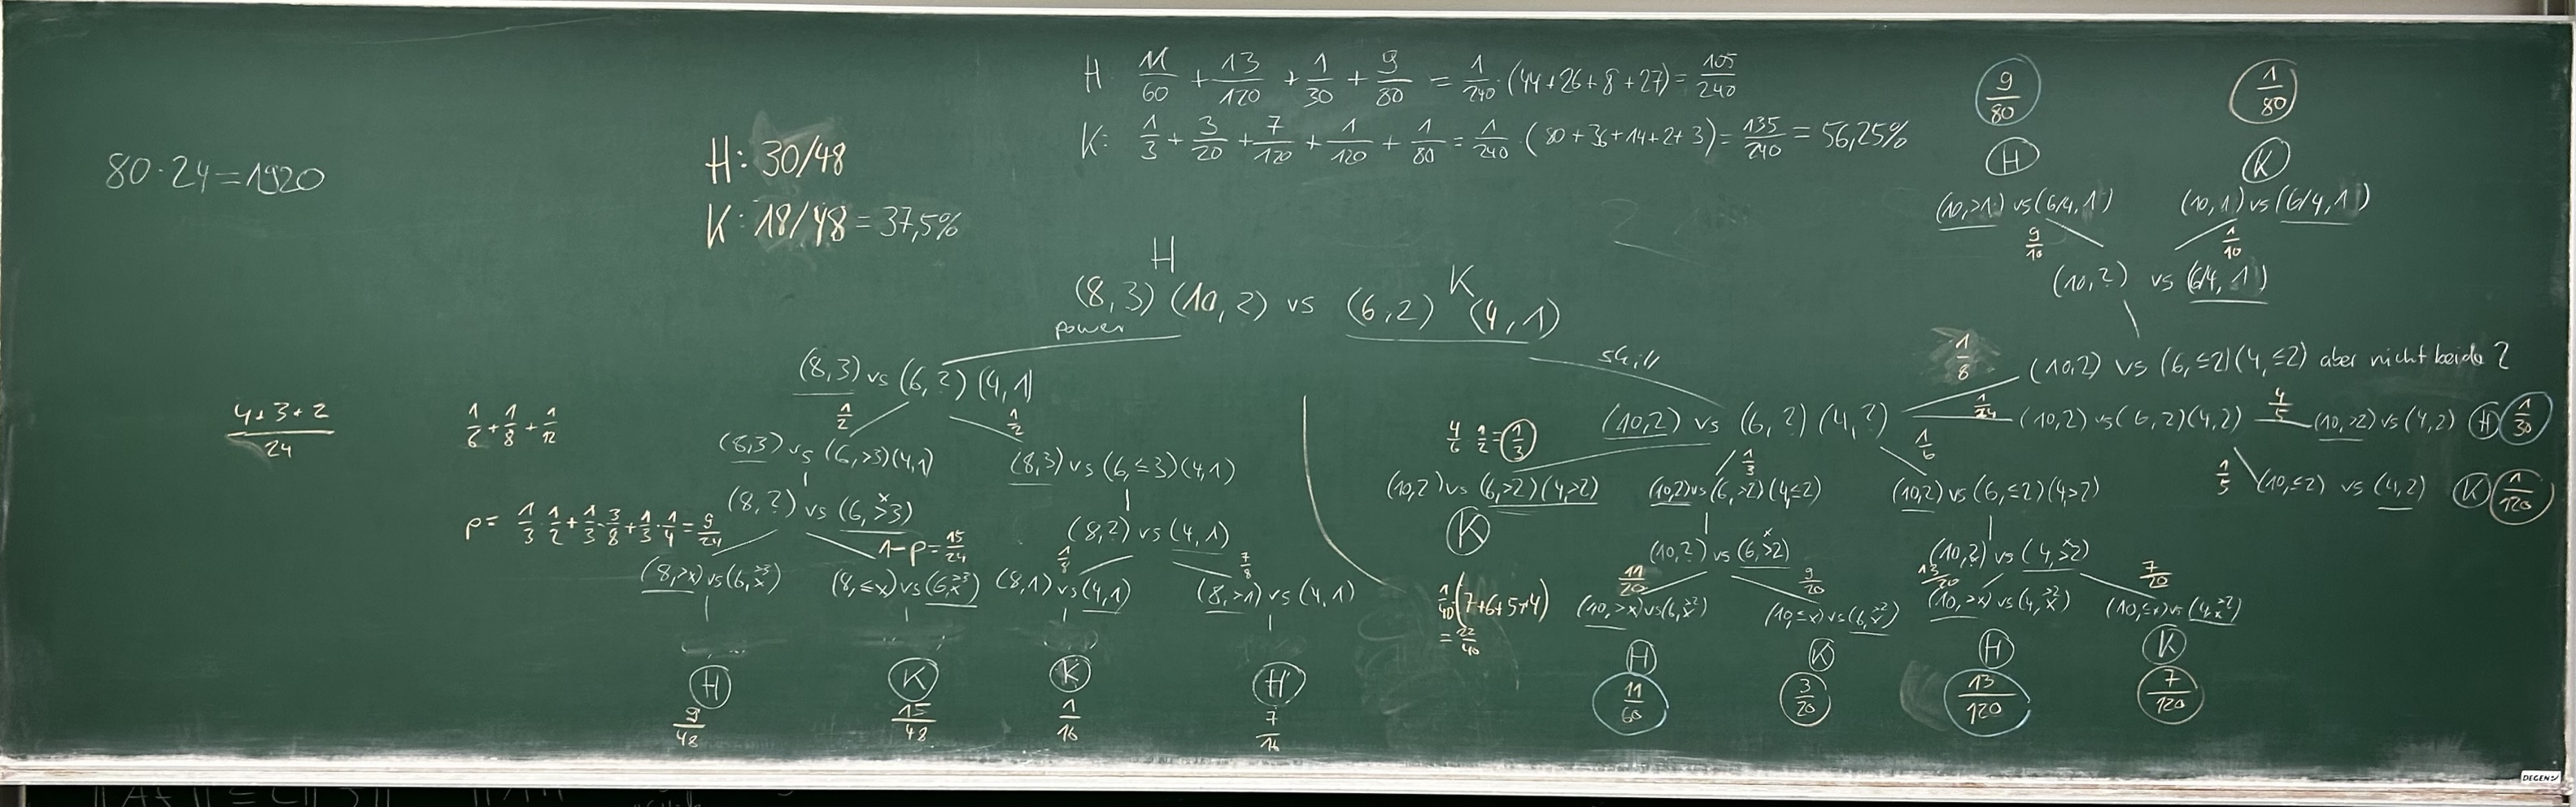 H: 11/60 + 13/120 + 1/30 + 9/80 = 1/240 · (44+26+8+27) = 105/240
K: 1/3 + 3/20 + 7/120 + 1/120 + 1/80 = 1/240 · (80+36+14+2+3) = 135/240 = 56,25%
9/80
1/80
H
K
80·24=1920
H: 30/48
K: 18/48 = 37,5%
(10,>1) vs (6/4,1)
(10,1) vs (6/4,1)
9/10
1/10
(10,?) vs (6/4,1)
H
K
(8,3) (10,2) vs (6,2) (4,1)
power
skill
1/8
(10,2) vs (6,≤2)(4,≤2) aber nicht beide 2
(8,3) vs (6,?) (4,1)
1/2
1/2
(10,2) vs (6,?) (4,?)
1/24
(10,2) vs (6,2)(4,2)
4/5
(10,>2) vs (4,2)
H
1/30
4+3+2/24
1/6 + 1/8 + 1/12
(8,3) vs (6,>3)(4,1)
(8,3) vs (6,≤3)(4,1)
4/6 · 1/2 = 1/3
1/3
1/6
(10,2) vs (6,>2)(4,>2)
K
(10,2) vs (6,>2)(4,≤2)
(10,2) vs (6,≤2)(4,>2)
1/5
(10,≤2) vs (4,2)
K
1/120
p = 1/3 · 1/2 + 1/3 · 3/8 + 1/3 · 1/4 = 9/24
(8,?) vs (6,x>3)
1-p = 15/24
(8,?) vs (4,1)
1/8
7/8
(10,?) vs (6,x>2)
(10,?) vs (4,x>2)
(8,>x) vs (6,x>3)
(8,≤x) vs (6,x>3)
(8,1) vs (4,1)
(8,>1) vs (4,1)
1/40 (7+6+5+4)
= 22/40
11/20
9/20
13/20
7/20
(10,>x) vs (6,x>2)
(10,≤x) vs (6,x>2)
(10,>x) vs (4,x>2)
(10,≤x) vs (4,x>2)
H
K
K
H
H
K
H
K
9/48
15/48
1/16
7/16
11/60
3/20
13/120
7/120
DEGEN